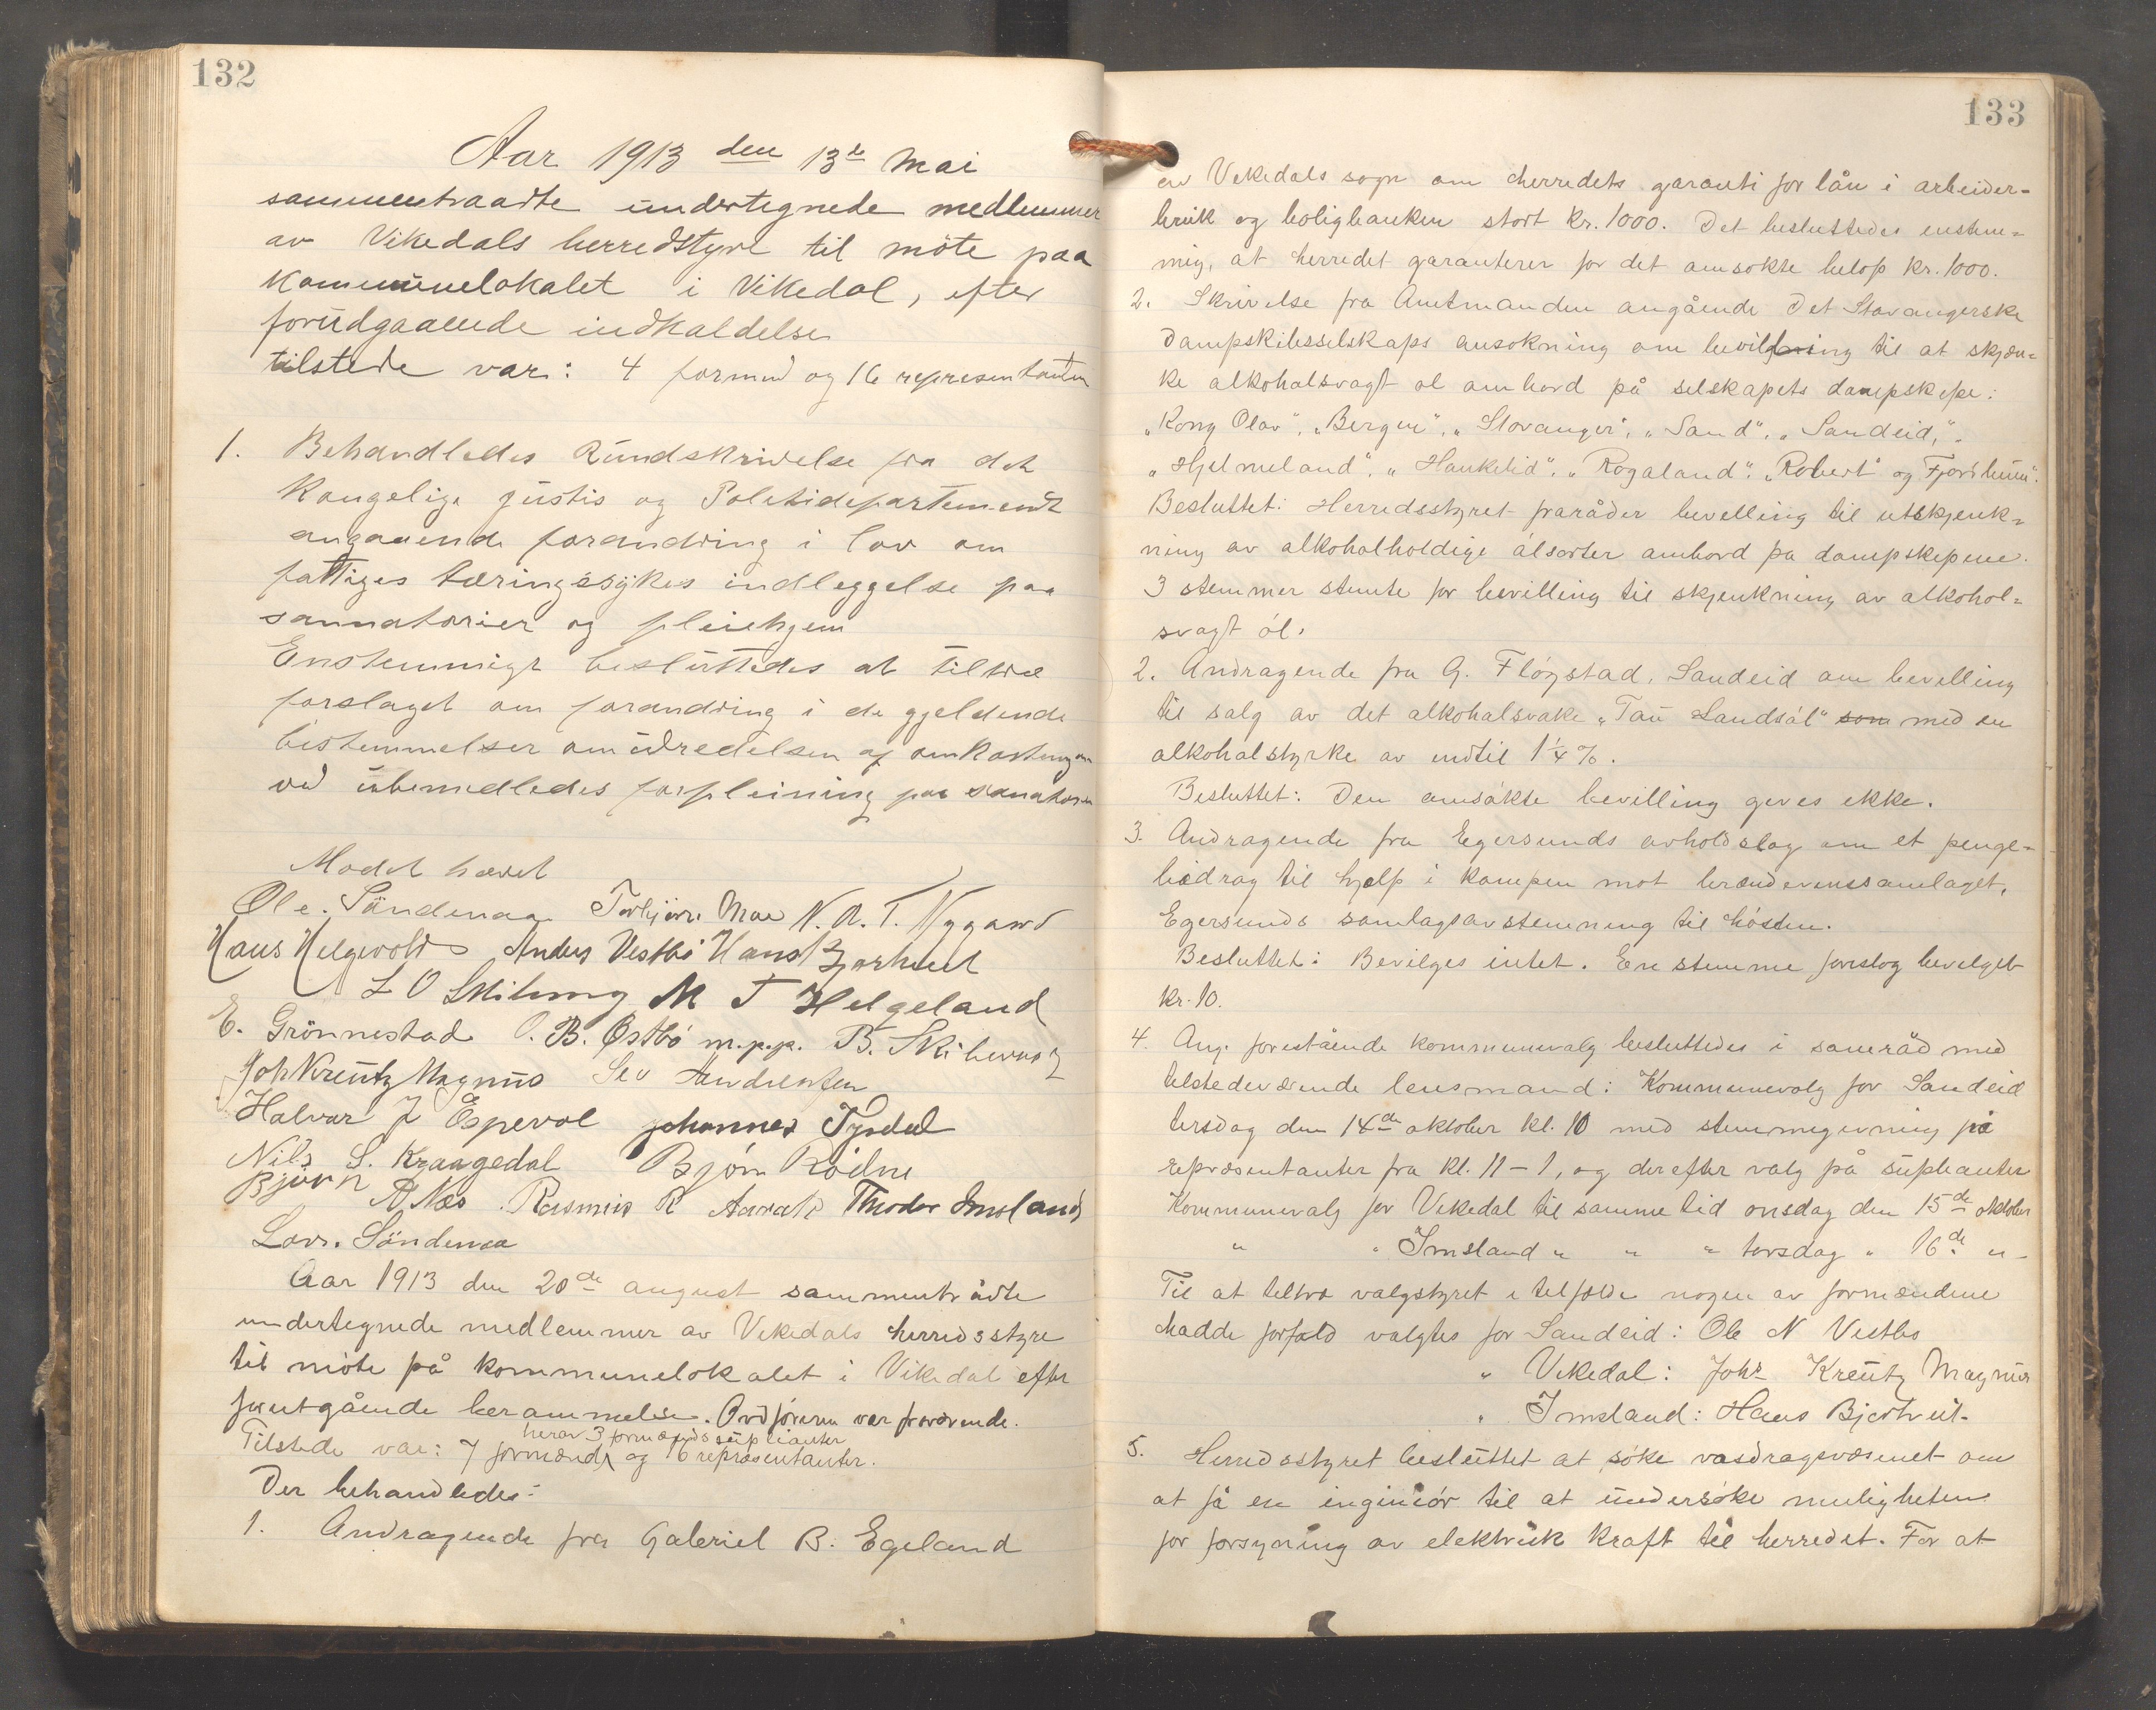 132
Aar 1913 den 13de Mai
sammentraadte undertegnede medlemmer
av Vikedals herredstyre til möte paa
Kommunelokalet i Vikedal, efter
forudgaaende indkaldelse
tilstede var: 4 formend og 16 representanter
1. Behandledes Rundskrivelse fra det
Kongelige Justis og Politidepartement
angaaende forandring i lov om
fattiges tæringssykes indleggelse paa
sannatorier og pleiehjem
Enstemmigt besluttedes at tiltræ
forslaget om forandring i de gjeldende
bestemmelser om udredelsen af omkostningen
ved ubemedledes forpleining paa sanatorier
Modet hævet
Ole. Söndenaa Torbjörn Mae N. A. T. Nygaard
Hans Helgevold Anders Vestbö Hans Bjorhuit
L O Skibnung M T Helgeland
E. Grönnestad O. B. Østbö m.p.p. B. Skibenung
Joh Kreutz Magnus Sev Andreasen
Halvar J Espevol Johannes Tysdal
Nils S. Kraagedal Bjørn Rödne
Björn A Næs Rasmus R Aarak Thodor Imsland
Lavr. Söndenaa
Aar 1913 den 20de august sammentrådte
undertegnede medlemmer av Vikedals herredsstyre
til möte på kommunelokalet i Vikedal efter
forutgående berammelse. Ordføreren var fraværende.
herav 3 formændssuplianter
Tilstede var: 7 formænd og 16 repræsentanter.
Der behandledes:
1. Andragende fra Gabriel B. Egeland
133
av Vikedals sogn om herredets garanti for lån i arbeider-
bruk og boligbanken stort kr. 1000. Det besluttedes enstem-
mig, at herredet garanterer for det ansøkte beløp kr. 1000.
2. Skrivelse fra Amtmanden angående Det Stavangerske
Dampskibsselskaps ansøkning om bevilling til at skjæn-
ke alkoholsvagt øl ombord på selskapets dampskipe:
"Kong Olav", "Bergen", "Stavanger", "Sand", "Sandeid,",
"Hjelmeland", "Haukelid", "Rogaland", "Robert" og Fjordheim".
Besluttet: Herredsstyret fraråder bevilling til utskjenk-
ning av alkoholholdige ölsorter ombord på dampskipene.
3 stemmer stemte for bevilling til skjenkning av alkohol-
svagt öl.
2. Andragende fra G. Flögstad, Sandeid om bevilling
til salg av det alkoholsvake "Tau Landsöl" som med en
alkoholstyrke av indtil 1 1/4 %.
Besluttet: Den ansökte bevilling gives ikke.
3. Andragende fra Egersunds avholdslag om et penge-
bidrag til hjelp i kampen mot brændevinssamlaget,
Egersunds samlagsavstemning til hösten.
Besluttet: Bevilges intet. En stemme foreslog bevilget
kr. 10.
4. Ang. forestående kommunevalg besluttedes i samråd med
tilstedeværende lensmand: Kommunevalg for Sandeid
tirsdag den 14de oktober kl. 10 med stemmegivning på
repræsentanter fra kl. 11 - 1, og derefter valg på supleanter
Kommunevalg for Vikedal til samme tid onsdag den 15de oktober
" " Imsland " " " torsdag " 16de "
Til at tiltræ valgstyret i tilfælde nogen av formændene
hadde forfald valgtes for Sandeid: Ole N Vestbö
" Vikedal: Johs Kreutz Magnus
" Imsland: Hans Bjorhuit.
5. Herredsstyret besluttet at söke vasdragsvæsenet om
at få en ingeniör til at undersöke muligheten
for forsyning av elektrisk kraft til herredet. For at